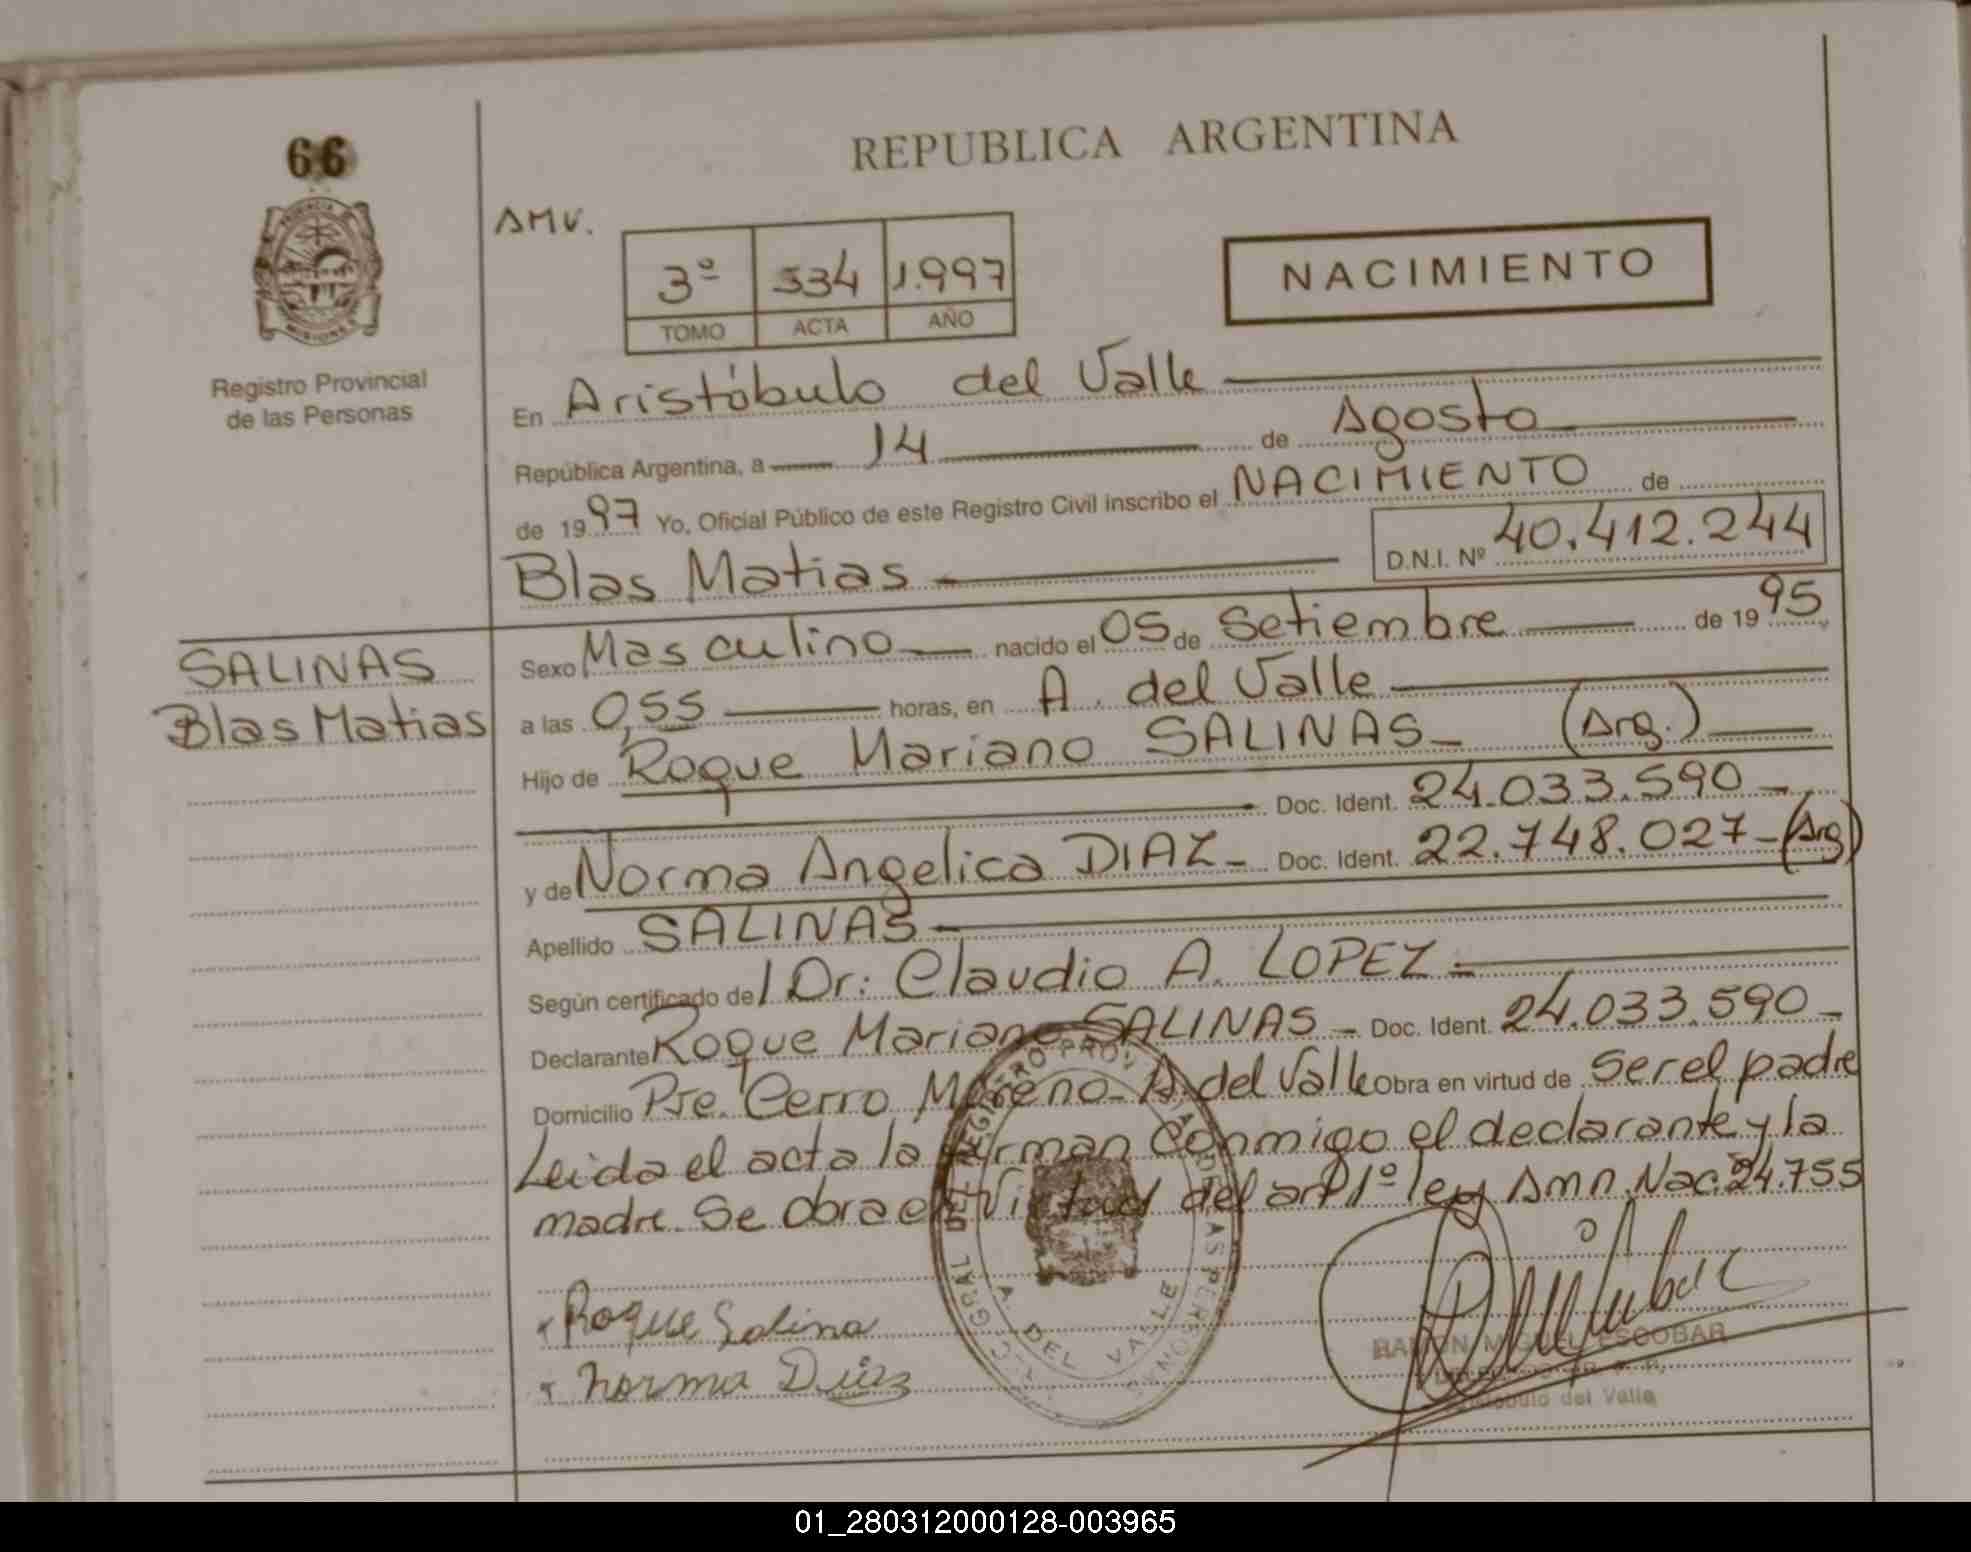 66
REPUBLICA ARGENTINA
AMV.
3º 334 1.997
TOMO ACTA AÑO
NACIMIENTO
PROVINCIA
MISIONES
Registro Provincial
de las Personas
En Aristóbulo del Valle
República Argentina, a 14 de Agosto
de 1997 Yo, Oficial Público de este Registro Civil inscribo el NACIMIENTO de
Blas Matias D.N.I. Nº 40.412.244
SALINAS
Blas Matias
Sexo Masculino nacido el 05 de Setiembre de 1995
a las 0,55 horas, en A. del Valle
Hijo de Roque Mariano SALINAS (Arg.)
Doc. Ident. 24.033.590
y de Norma Angelica DIAZ Doc. Ident. 22.748.027 (Arg)
Apellido SALINAS
Según certificado del Dr: Claudio A. LOPEZ
Declarante Roque Mariano SALINAS Doc. Ident. 24.033.590
Domicilio Pje. Cerro Moreno A. del Valle Obra en virtud de ser el padre
Leida el acta la firman conmigo el declarante y la
madre. Se obra en virtud del art 1º ley Amn. Nac. 24.755
Roque Salina
Norma Diaz
A. DEL VALLE
RAMON MIGUEL ESCOBAR
Aristobulo del Valle
01_280312000128-003965